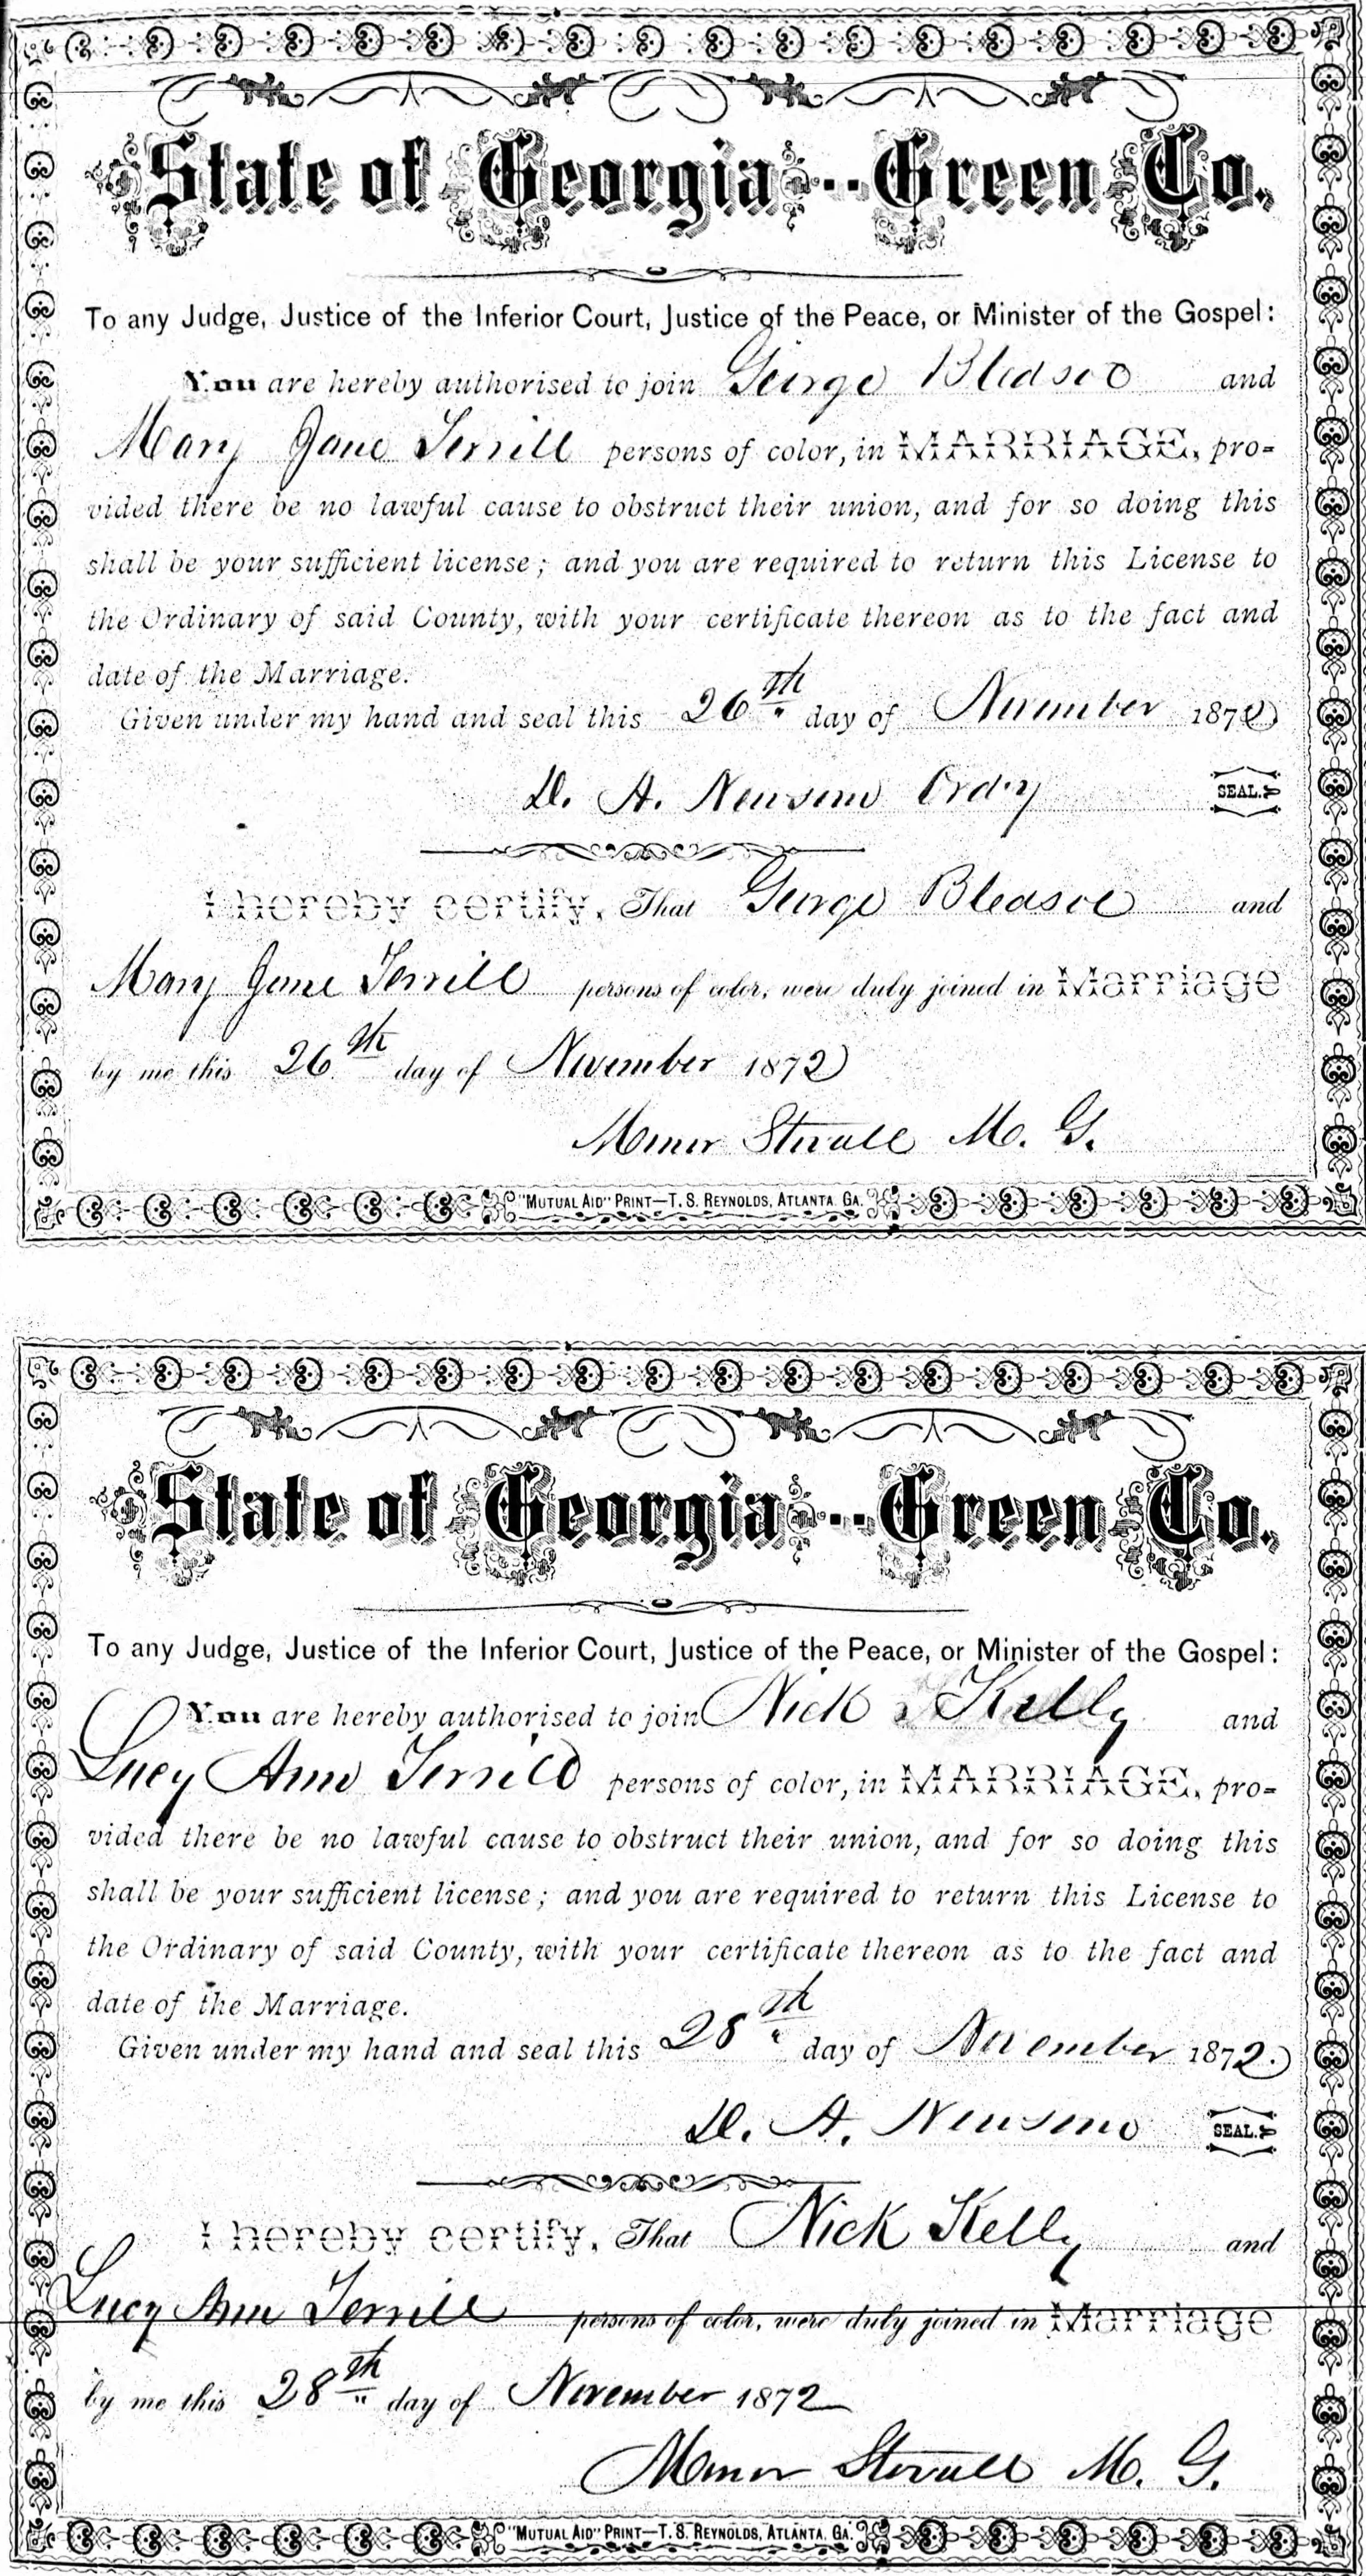 State of Georgia--Green Co.
To any Judge, Justice of the Inferior Court, Justice of the Peace, or Minister of the Gospel:
You are hereby authorised to join George Bledsoe and
Mary Jane Terrill persons of color, in MARRIAGE, pro=
vided there be no lawful cause to obstruct their union, and for so doing this
shall be your sufficient license; and you are required to return this License to
the Ordinary of said County, with your certificate thereon as to the fact and
date of the Marriage.
Given under my hand and seal this 26th day of November 1872
D. A. Newsom Ordy SEAL.
I hereby certify, That George Bledsoe and
Mary Jane Terrill persons of color, were duly joined in Marriage
by me this 26th day of November 1872
Stovall M. G.
"MUTUAL AID" PRINT—T. S. REYNOLDS, ATLANTA, GA.
State of Georgia--Green Co.
To any Judge, Justice of the Inferior Court, Justice of the Peace, or Minister of the Gospel:
You are hereby authorised to join Nick Kelly and
Lucy Ann Terrill persons of color, in MARRIAGE, pro=
vided there be no lawful cause to obstruct their union, and for so doing this
shall be your sufficient license; and you are required to return this License to
the Ordinary of said County, with your certificate thereon as to the fact and
date of the Marriage.
Given under my hand and seal this 28th day of November 1872.
D. A. Newsom SEAL.
I hereby certify, That Nick Kelly and
Lucy Ann Terrill persons of color, were duly joined in Marriage
by me this 28th day of November 1872
Stovall M. G.
"MUTUAL AID" PRINT—T. S. REYNOLDS, ATLANTA, GA.